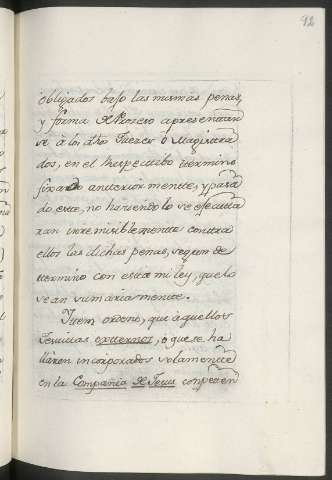 92
obligados bajo las mismas penas,
y forma de Proceso a presentar
se à los dhos Juezes ò Magistra
dos, en el hespectibo termino
fixado anteriormente, y pasa
do este, no haciendolo se efectua
ran irremisiblemente contra
ellos las dichas penas, segun de
termino con esta mi ley, que lo
sean sumariamente.
Item ordeno, que àquellos
Jesuitas externos, o que se ha
llaren incorporados solamente
en la Compañia de Jesus con